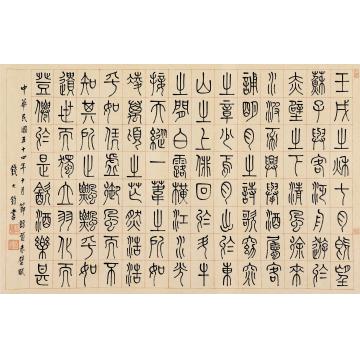 壬戌之秋七月既望
蘇子與客泛舟遊於
赤壁之下清風徐來
水波不興舉酒屬客
誦明月之詩歌窈窕
之章少焉月出於東
山之上徘徊於斗牛
之間白露橫江水光
接天縱一葦之所如
凌萬頃之茫然浩浩
乎如馮虛御風而不
知其所止飄飄乎如
遺世而獨立羽化而
登僊於是飲酒樂甚
中華民國五十四年十月節錄前赤壁賦
錢大鈞書